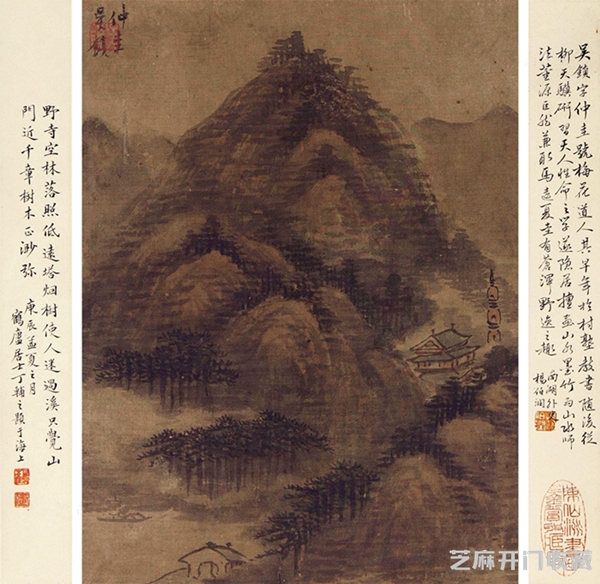 吳鎮字仲圭號梅花道人其早年於村塾教書隨後從
柳天驥研習天人性命之學遂隱居擅畫山水墨竹而山水師
法董源巨然兼取馬遠夏圭有蒼渾野逸之趣
西湖外史
楊伯潤
仲圭
吳鎮
野寺空林落照低遠塔烟樹使人迷過溪只覺山
門近千章樹木正渺弥
庚辰孟夏之月
鶴廬居士丁輔之題于海上
芝麻开门收藏